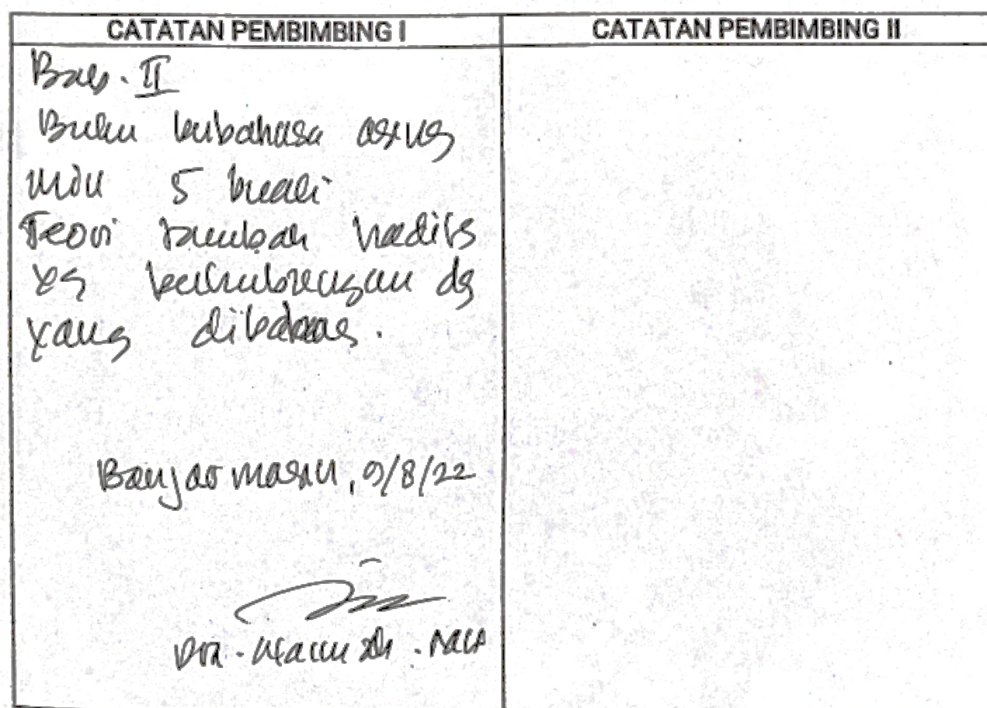 CATATAN PEMBIMBING I
CATATAN PEMBIMBING II
Bab. II
Buku berbahasa asing
min 5 buah
Teori tambah hadits
yg berhubungan dg
yang dibahas.
Banjarmasin, 9/8/22